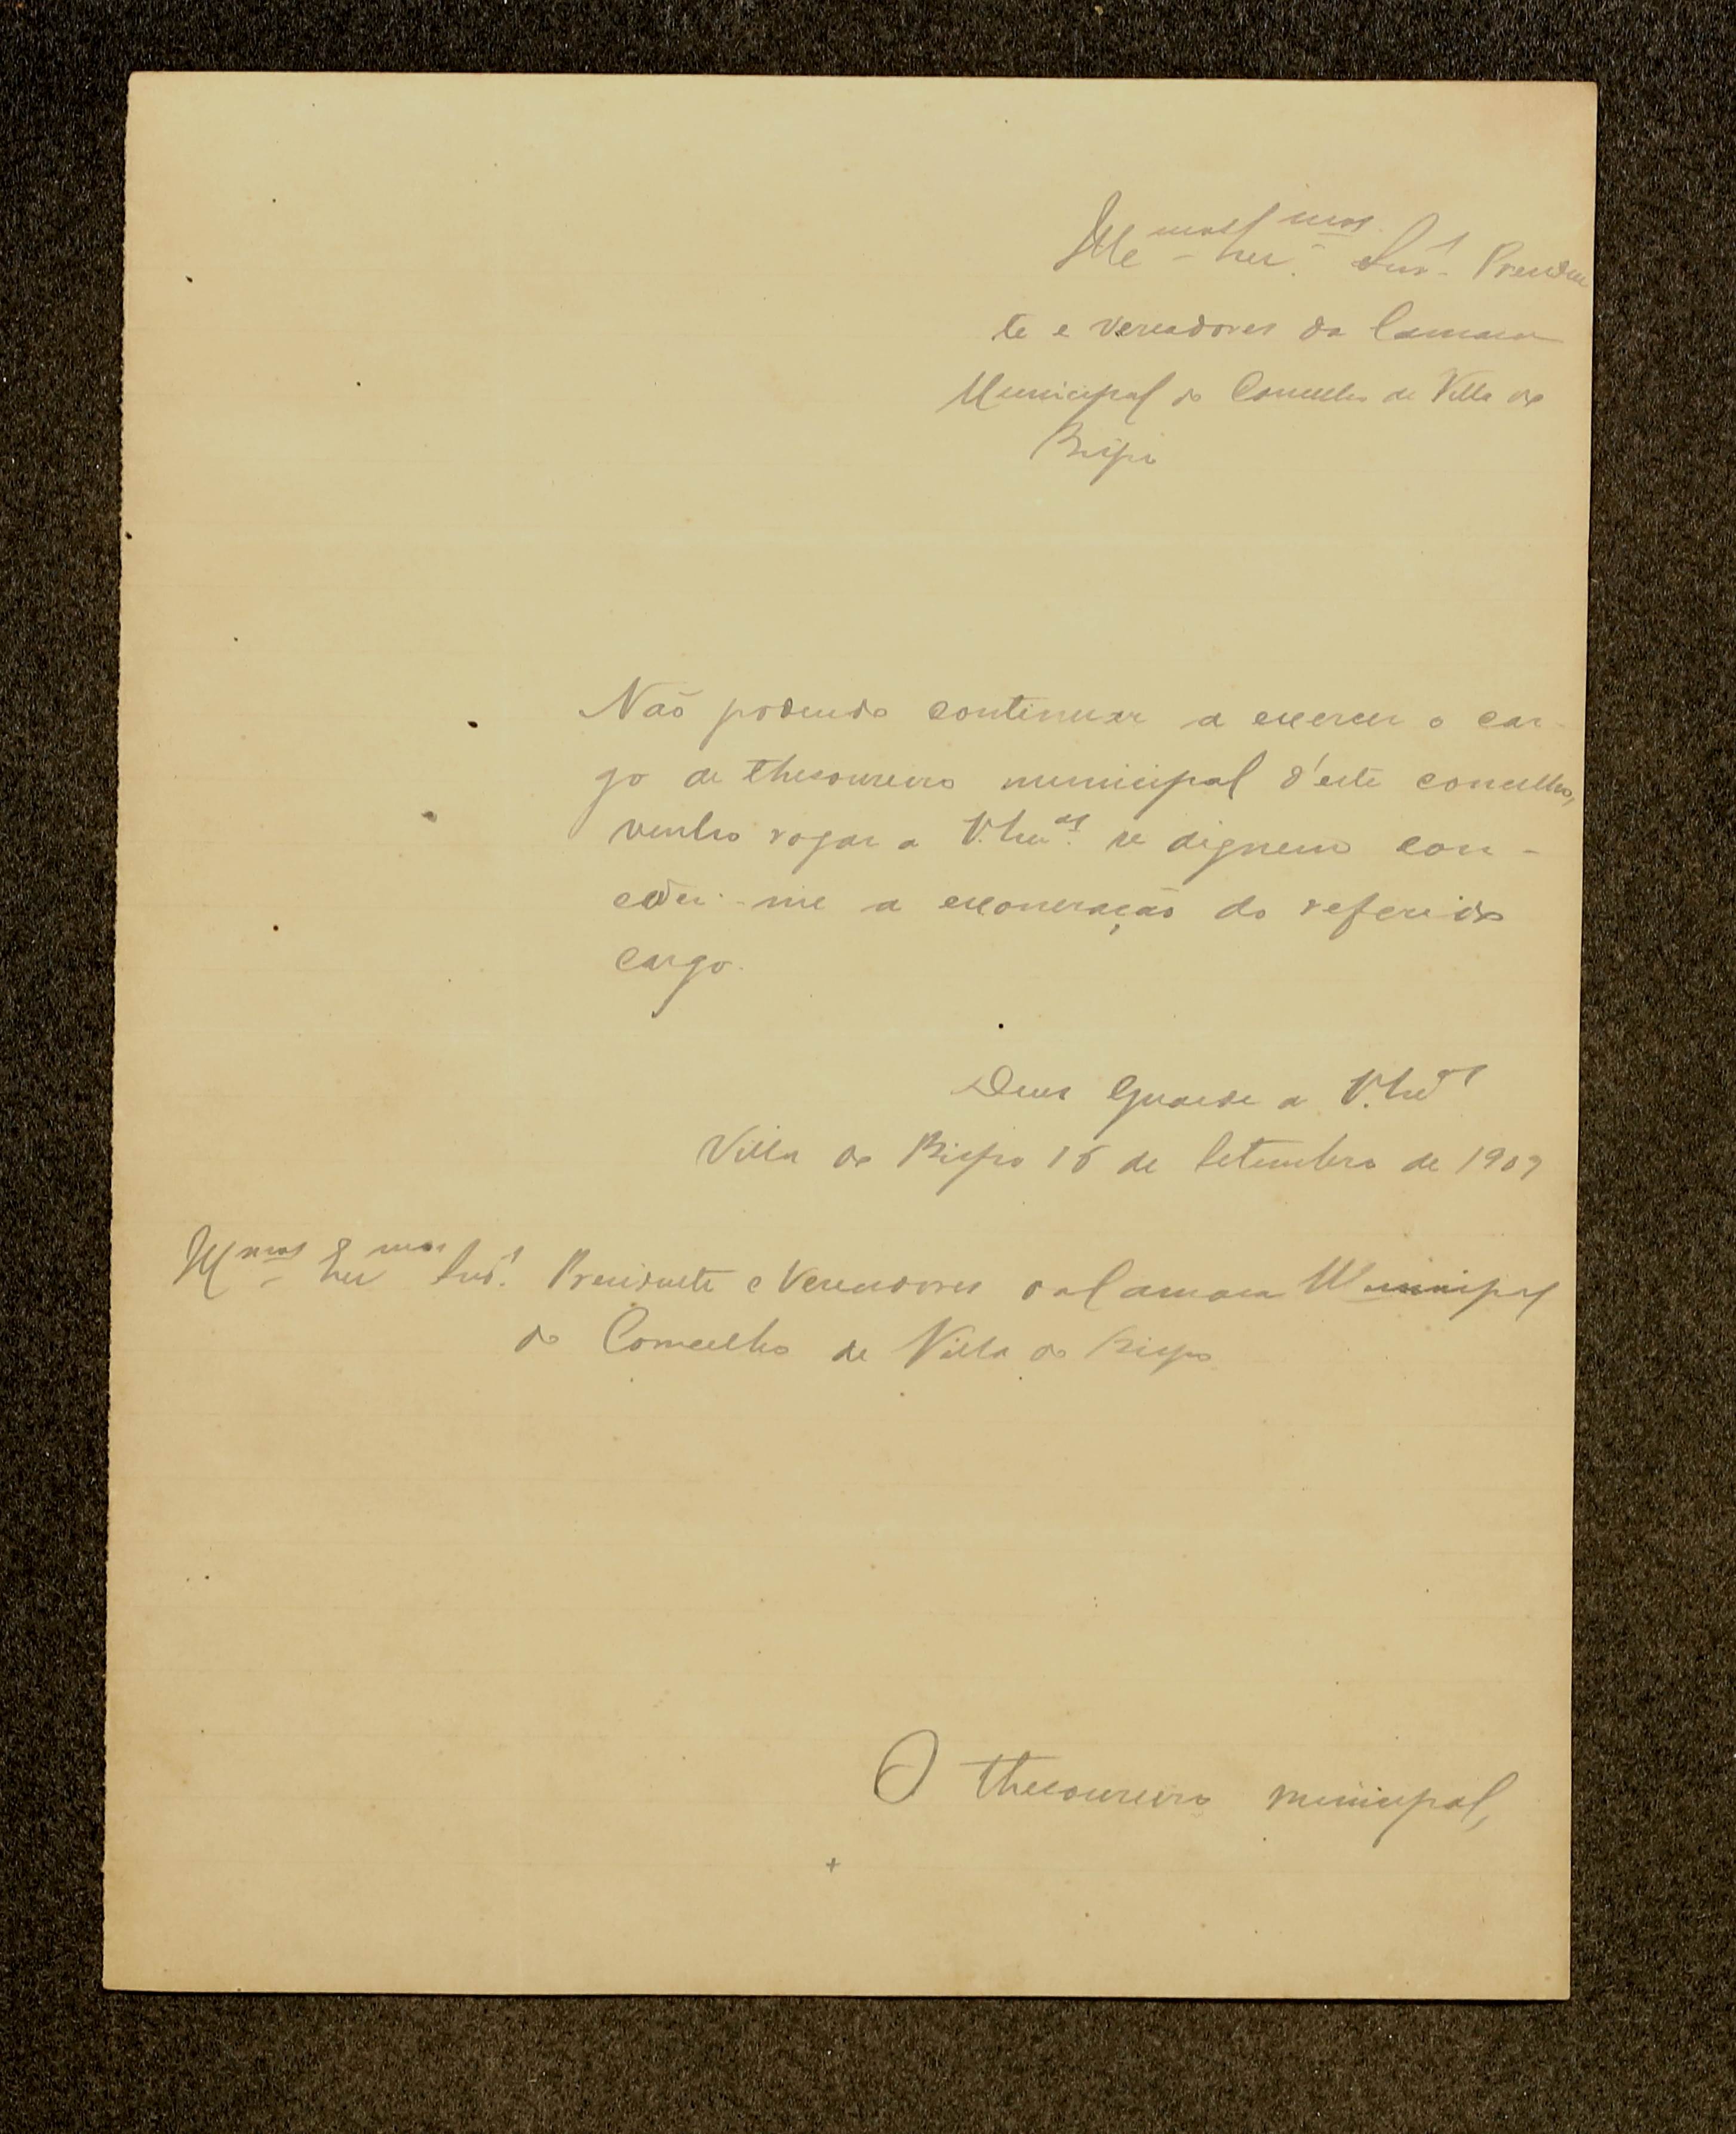 Ill^mos Ex^mos Snr^s Presiden
te e vereadores da Camara
Municipal do Concelho de Villa do
Bispo
Não podendo continuar a exercer o car-
go de thesoureiro municipal d'este concelho,
venho rogar a V. Ex^as se dignem con-
ceder-me a exoneração do referido
cargo.
Deus Guarde a V. Ex^as
Villa do Bispo 15 de Setembro de 1909
Ill^mos e Ex^mos Snr^s Presidente e Vereadores da Camara Municipal
do Concelho de Villa do Bispo
O thesoureiro municipal,
+